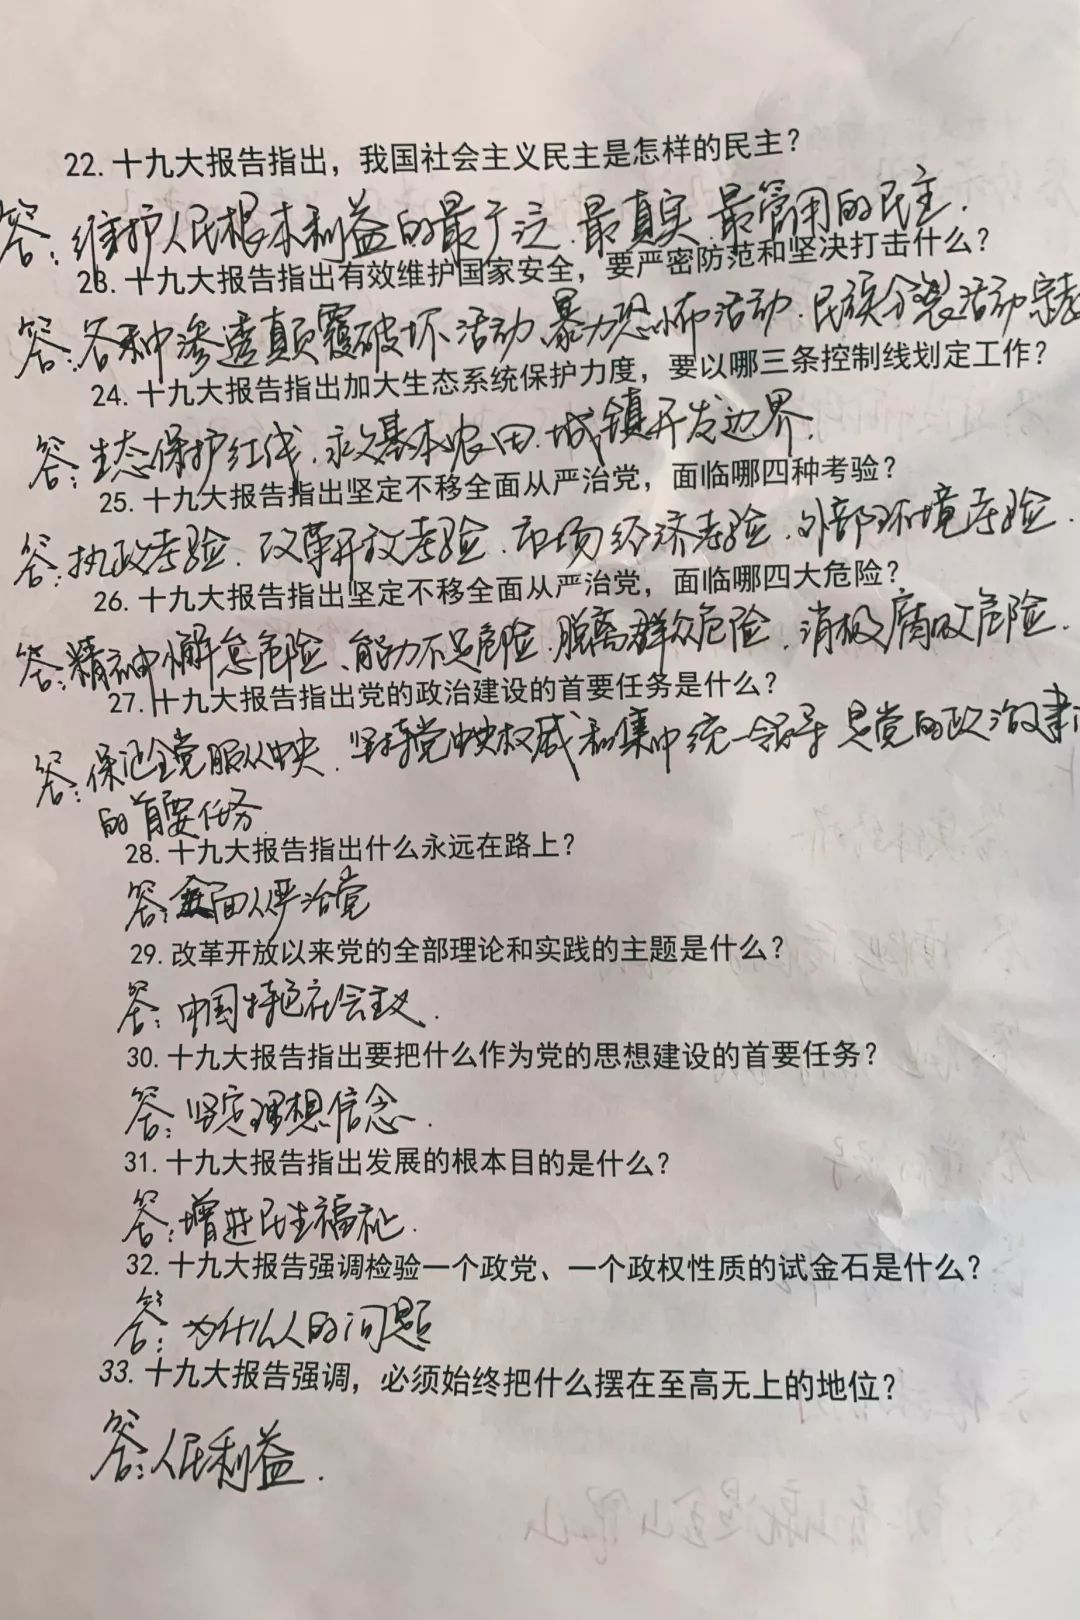 22. 十九大报告指出，我国社会主义民主是怎样的民主？
答：维护人民根本利益的最广泛、最真实、最管用的民主．
23. 十九大报告指出有效维护国家安全，要严密防范和坚决打击什么？
答：各种渗透颠覆破坏活动、暴力恐怖活动、民族分裂活动宗教
24. 十九大报告指出加大生态系统保护力度，要以哪三条控制线划定工作？
答：生态保护红线、永久基本农田、城镇开发边界．
25. 十九大报告指出坚定不移全面从严治党，面临哪四种考验？
答：执政考验、改革开放考验、市场经济考验、外部环境考验．
26. 十九大报告指出坚定不移全面从严治党，面临哪四大危险？
答：精神懈怠危险、能力不足危险、脱离群众危险、消极腐败危险．
27. 十九大报告指出党的政治建设的首要任务是什么？
答：保证全党服从中央、坚持党中央权威和集中统一领导是党的政治建
的首要任务
28. 十九大报告指出什么永远在路上？
答：全面从严治党
29. 改革开放以来党的全部理论和实践的主题是什么？
答：中国特色社会主义．
30. 十九大报告指出要把什么作为党的思想建设的首要任务？
答：坚定理想信念．
31. 十九大报告指出发展的根本目的是什么？
答：增进民生福祉．
32. 十九大报告强调检验一个政党、一个政权性质的试金石是什么？
答：为什么人的问题
33. 十九大报告强调，必须始终把什么摆在至高无上的地位？
答：人民利益．